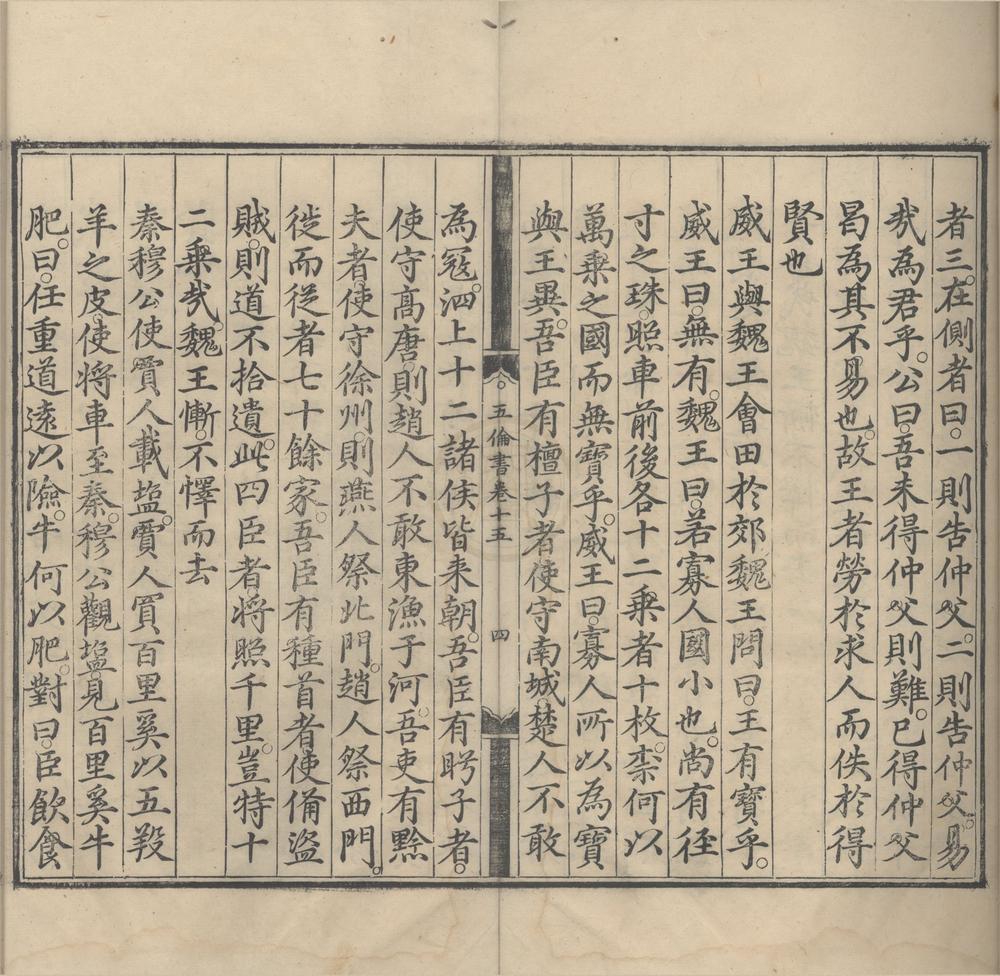 者三。在側者曰。一則告仲父。二則告仲父。易
哉為君乎。公曰。吾未得仲父則難。已得仲父
曷為其不易也。故王者勞於求人而佚於得
賢也
威王與魏王會田於郊魏王問曰。王有寶乎。
威王曰。無有。魏王曰。若寡人國小也。尚有徑
寸之珠。照車前後各十二乗者十枚。柰何以
萬乗之國而無寶乎。威王曰。寡人所以為寶
與王異。吾臣有檀子者使守南城。楚人不敢
五倫書卷十五
四
為冦。泗上十二諸侯皆来朝。吾臣有盻子者。
使守高唐。則趙人不敢東漁于河。吾吏有黔
夫者。使守徐州。則燕人祭北門。趙人祭西門。
徙而從者七十餘家。吾臣有種首者。使備盜
賊。則道不拾遺。此四臣者将照千里。豈特十
二乗㦲。魏王慚。不懌而去
秦穆公使賈人載塩。賈人買百里奚以五羖
羊之皮。使将車至秦。穆公觀塩。見百里奚牛
肥。曰。任重道遠以險。牛何以肥。對曰。臣飲食